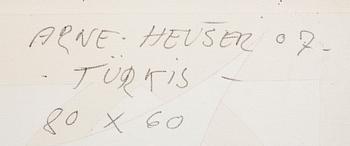 ARNE. HEUSER 07-
. TÜRKIS -
80 X 60